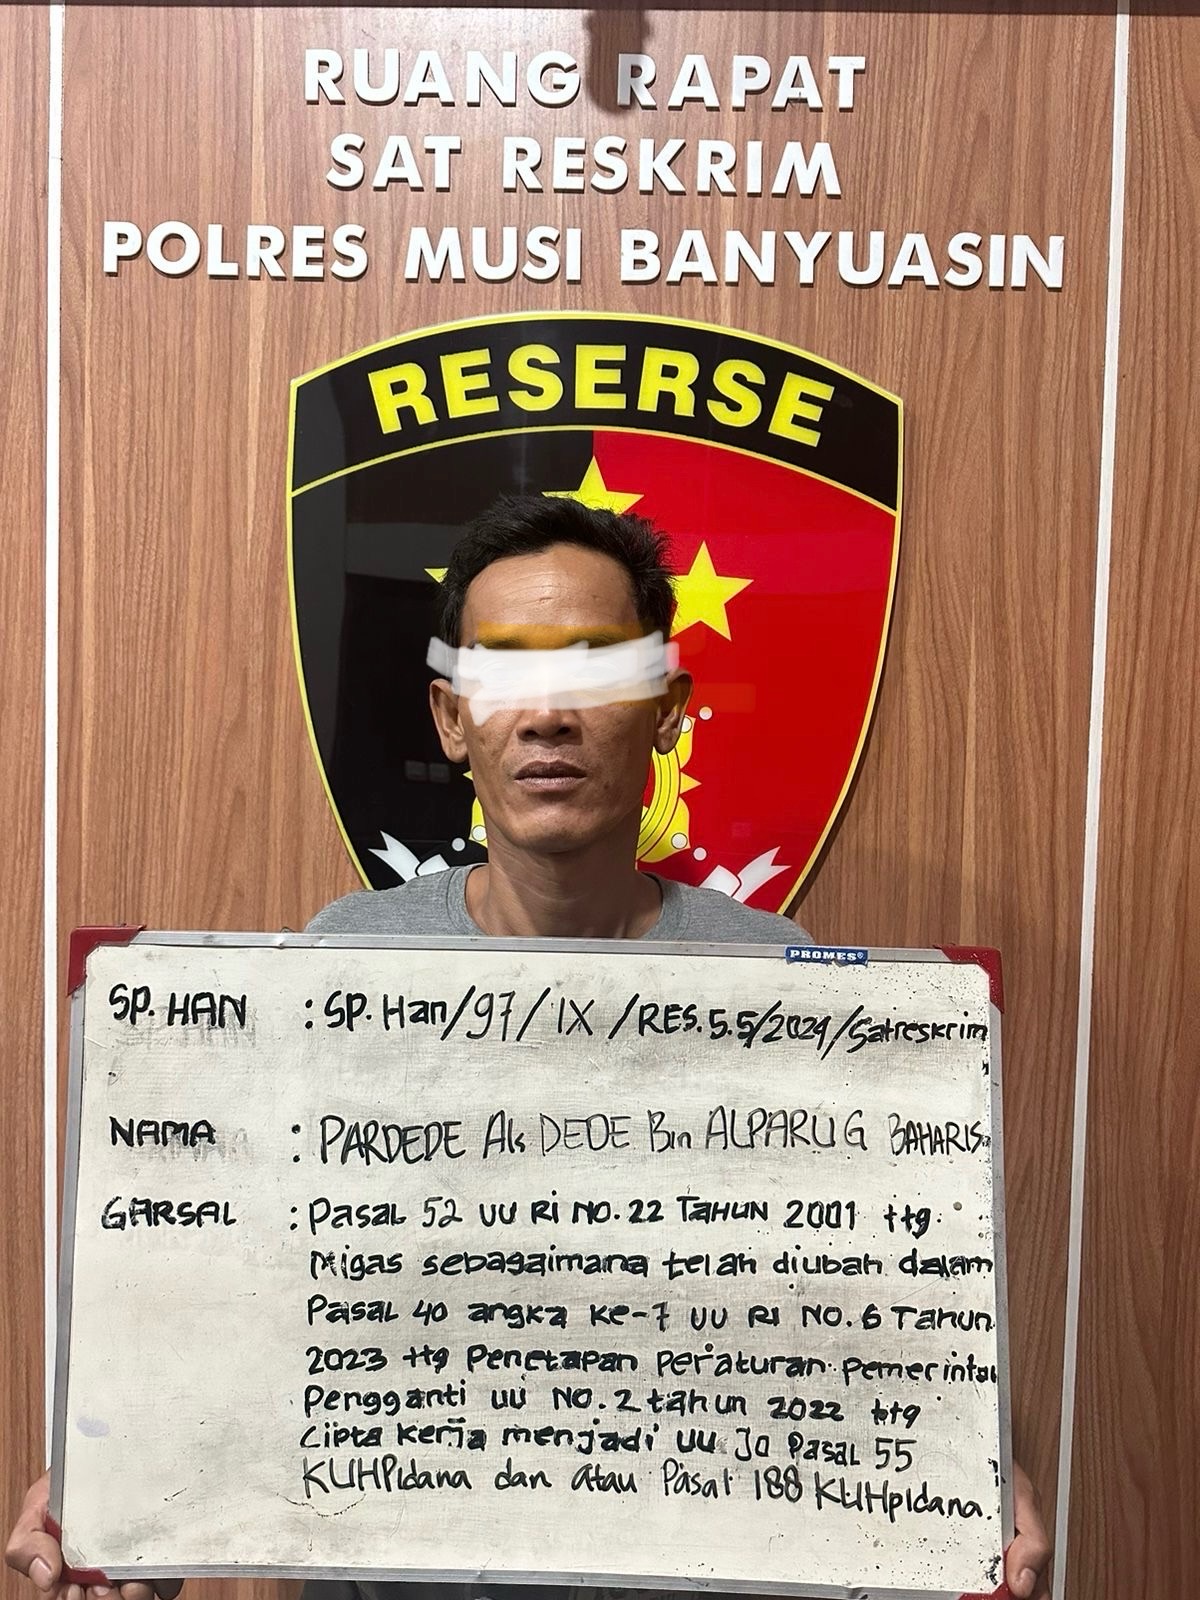 RUANG RAPAT
SAT RESKRIM
POLRES MUSI BANYUASIN
RESERSE
PROMES
SP. HAN : SP. Han/97/IX/RES.5.5/2024/Satreskrim
NAMA : PARDEDE Als DEDE Bin ALPARUG BAHARIS
GARSAL : Pasal 52 UU RI NO. 22 TAHUN 2001 ttg
Migas sebagaimana telah diubah dalam
Pasal 40 angka ke-7 UU RI NO. 6 Tahun
2023 ttg Penetapan Peraturan Pemerintah
Pengganti UU NO. 2 tahun 2022 ttg
Cipta Kerja menjadi UU Jo Pasal 55
KUHPidana dan atau Pasal 188 KUHpidana.